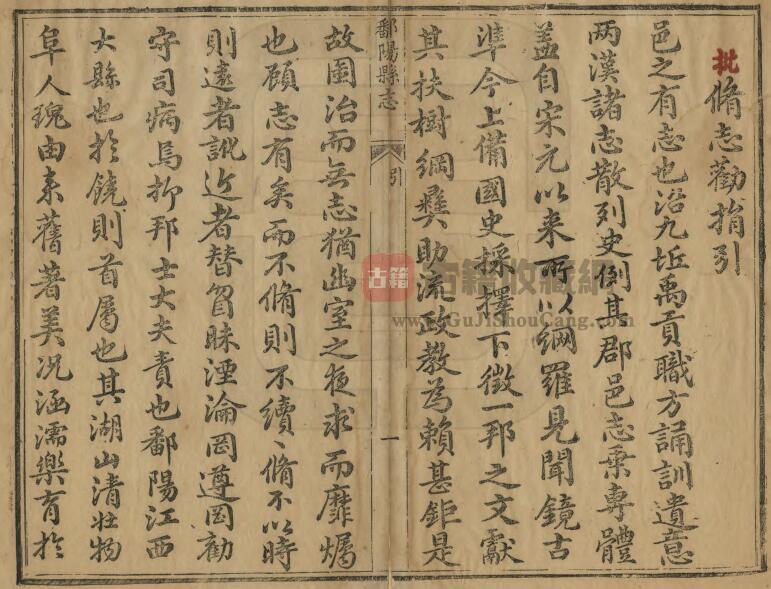 批脩志勸捐引
邑之有志也沿九坵禹貢職方誦訓遺意
兩漢諸志散列史例其郡邑志乗專體
蓋自宋元以来所以綱羅見聞鏡古
準今上備國史採擇下徵一邦之文獻
其扶樹綱彝助流政教為賴甚鉅是
鄱陽縣志
引
一
故圖治而無志猶幽室之夜求而靡燭
也顧志有矣而不脩則不續〻脩不以時
則遠者訛近者替習昧湮淪罔遵罔勸
守司病焉抑邦士大夫責也鄱陽江西
大縣也於饒則首屬也其湖山清壯物
阜人瑰由来舊著美況涵濡樂育於
古籍
古籍收藏網
www.GuJiShouCang.com